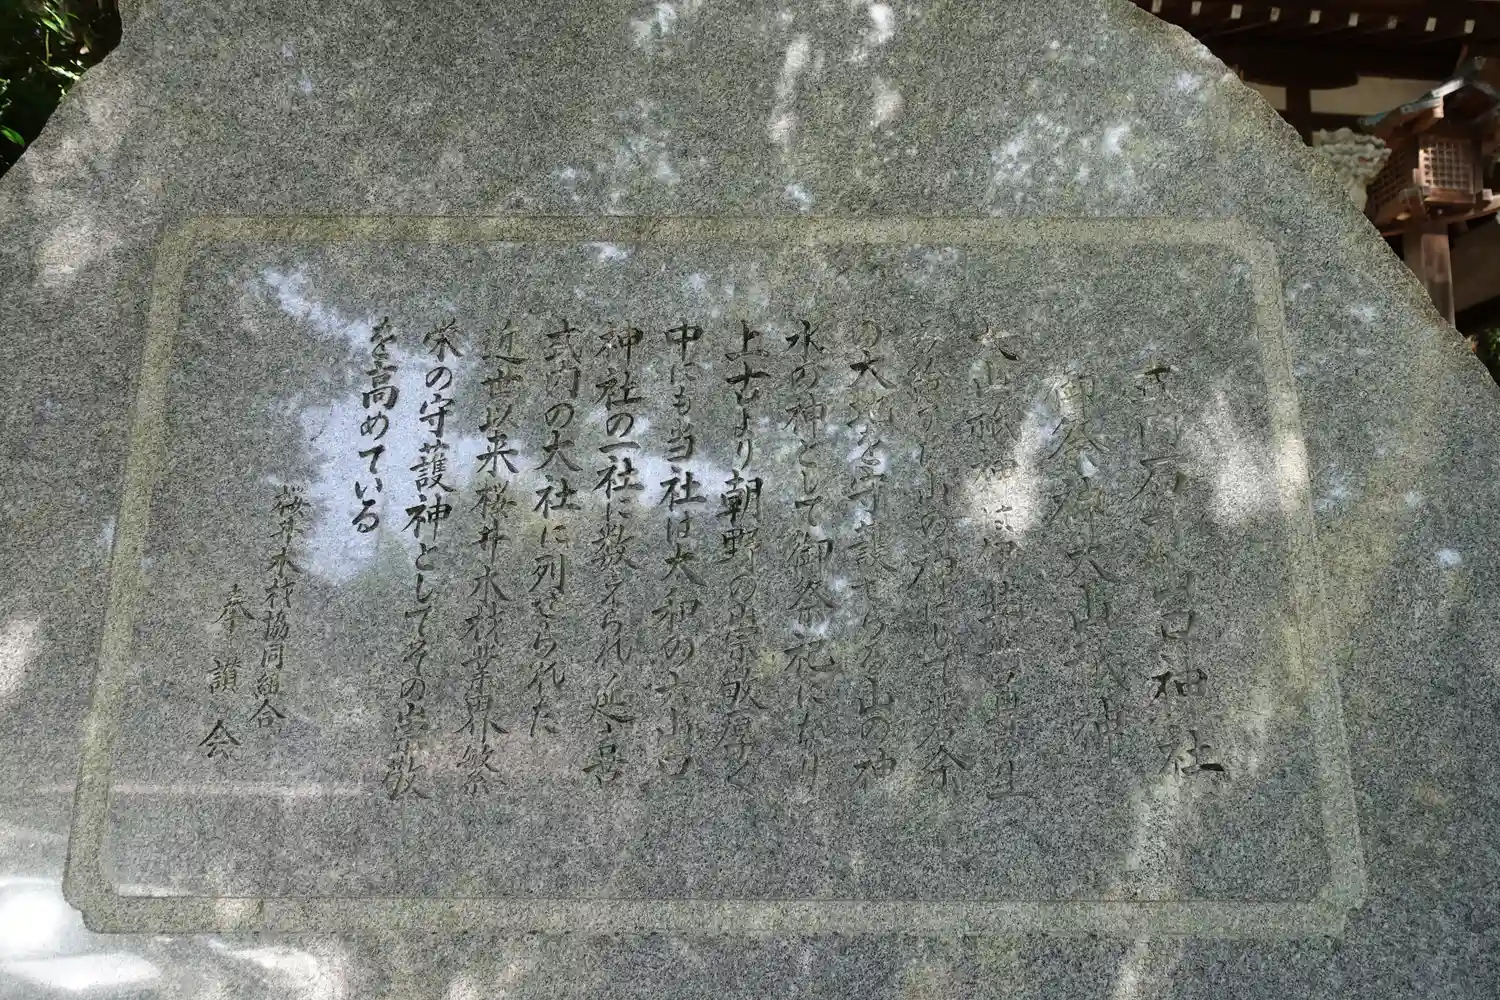 式内石村山口神社
御祭神大山祇神
大山祇神は 生
山の神にして磐余
の大地を守護せらる山の神
水の神として御祭祀になり
上古より朝野の崇敬厚く
中にも当社は大和の六山口
神社の一社に数えられ延喜
式内の大社に列せられた
近世以来桜井木材業界繁
栄の守護神としてその崇敬
を高めている
桜井木材協同組合
奉讃会